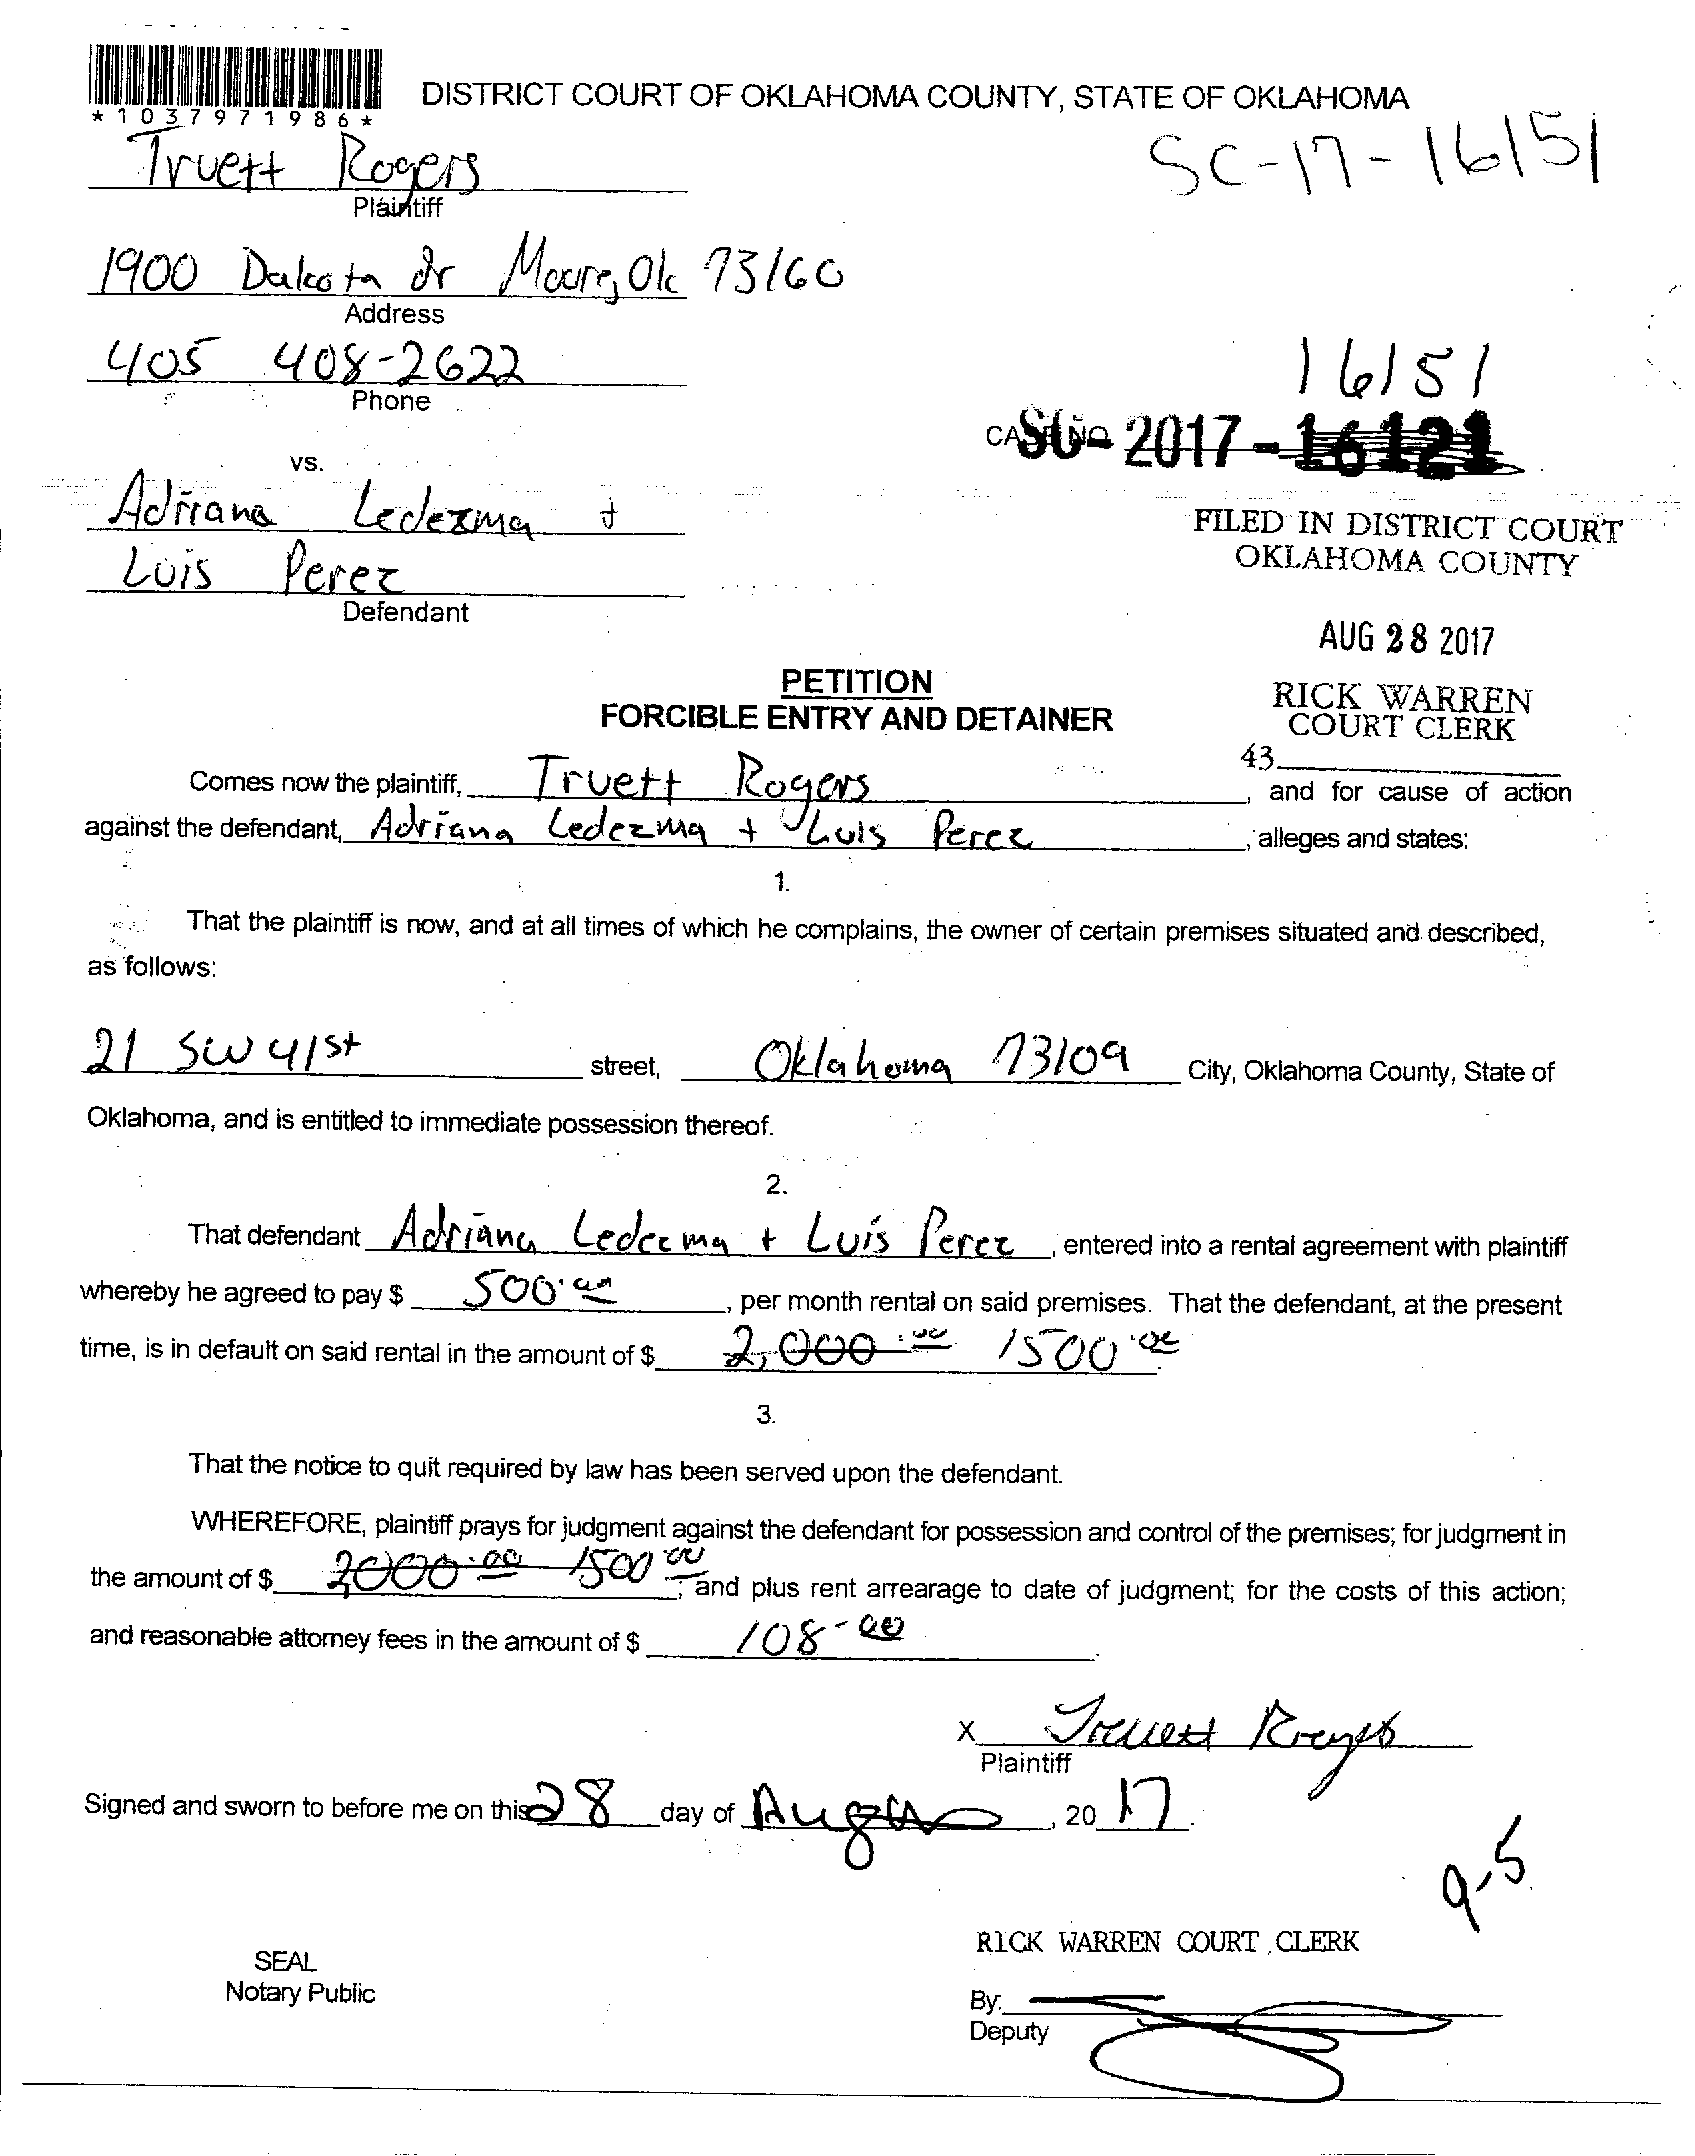 *1037971986*
DISTRICT COURT OF OKLAHOMA COUNTY, STATE OF OKLAHOMA
SC-17-16151
Truett Rogers
Plaintiff
1900 Dakota dr Moore, Ok 73160
Address
405 408-2622
Phone
16151
CASE NO. SC-2017-16121
vs.
Adriana Ledezma +
Luis Perez
Defendant
FILED IN DISTRICT COURT
OKLAHOMA COUNTY
AUG 28 2017
RICK WARREN
COURT CLERK
43
PETITION
FORCIBLE ENTRY AND DETAINER
Comes now the plaintiff, Truett Rogers, and for cause of action
against the defendant, Adriana Ledezma + Luis Perez, alleges and states:
1.
That the plaintiff is now, and at all times of which he complains, the owner of certain premises situated and described,
as follows:
21 SW 41st street, Oklahoma 73109 City, Oklahoma County, State of
Oklahoma, and is entitled to immediate possession thereof.
2.
That defendant Adriana Ledezma + Luis Perez, entered into a rental agreement with plaintiff
whereby he agreed to pay $ 500.00, per month rental on said premises. That the defendant, at the present
time, is in default on said rental in the amount of $ 2,000.00 1500.00.
3.
That the notice to quit required by law has been served upon the defendant.
WHEREFORE, plaintiff prays for judgment against the defendant for possession and control of the premises; for judgment in
the amount of $ 2000.00 1500.00; and plus rent arrearage to date of judgment; for the costs of this action;
and reasonable attorney fees in the amount of $ 108-00.
X Truett Rogers
Plaintiff
Signed and sworn to before me on this 28 day of August, 2017.
9-5
RICK WARREN COURT CLERK
SEAL
Notary Public
By:
Deputy